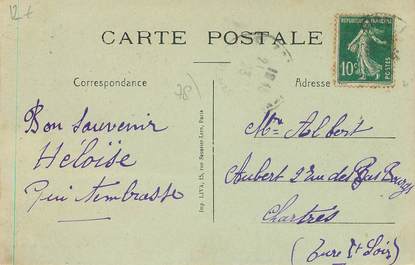 12 f
CARTE POSTALE
REPUBLIQUE FRANÇAISE
10c
POSTES
Correspondance
Adresse
78)
Bon souvenir
Héloïse
Qui t'embrasse
Imp. LIVA, 15, rue Saussier-Leroy, Paris
Mr Albert
Aubert 2 rue des Bas Bourgs
Chartres
(Eure & Loir)